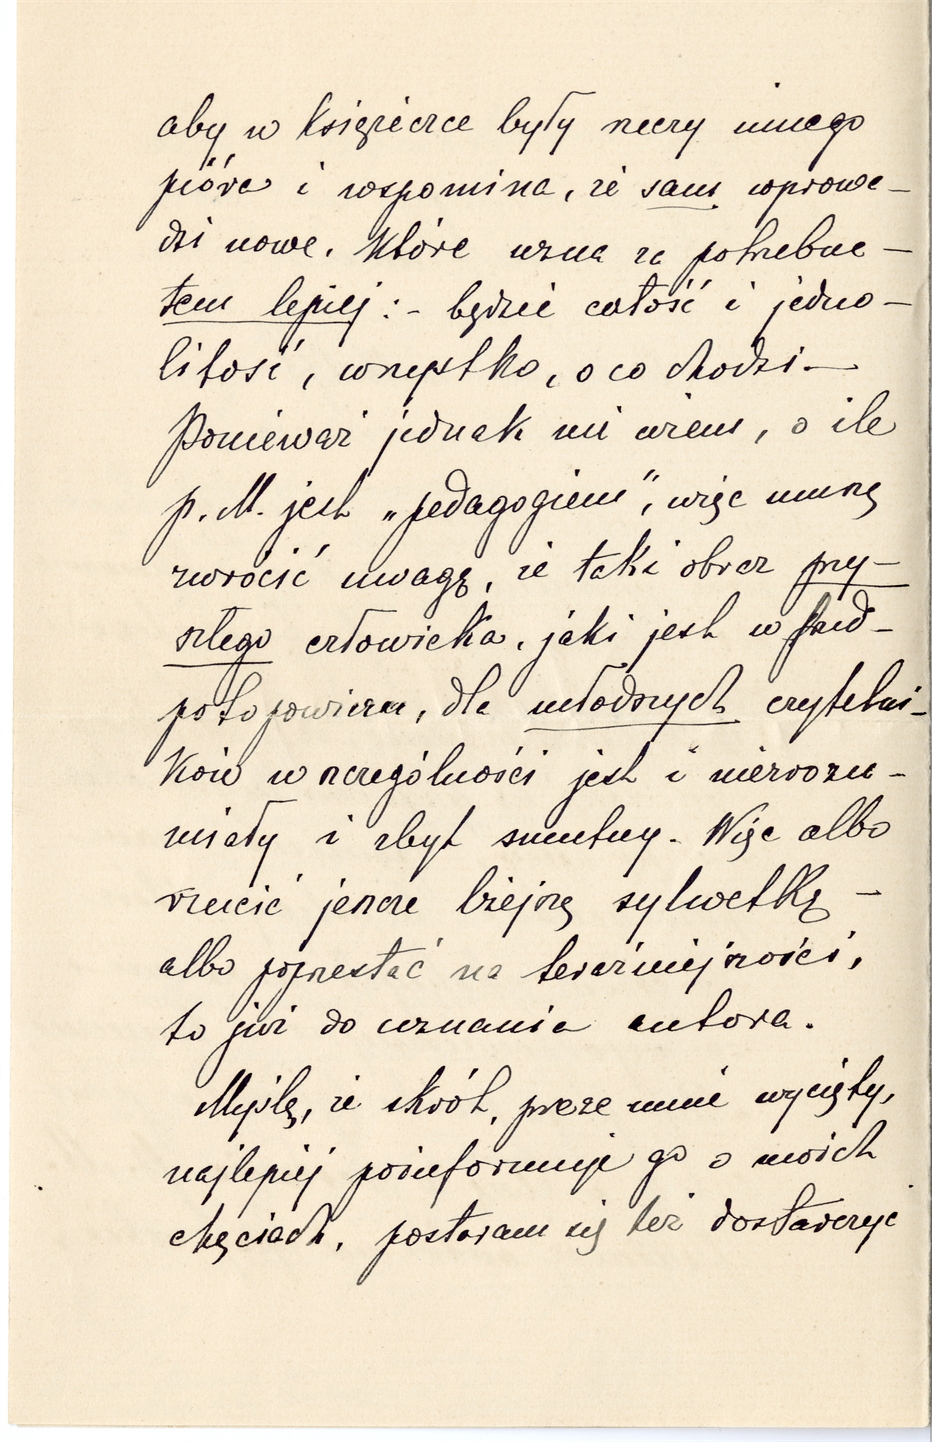 aby w książeczce były rzeczy innego
pióra i wspomina, że sam wprowa-
dzi nowe, które uzna za potrzebne –
tem lepiej: - będzie całość i jedno-
litość, wszystko, o co chodzi. —
Ponieważ jednak nie wiem, o ile
p. M. jest „pedagogiem", więc muszę
zwrócić uwagę, że taki obraz przy-
szłego człowieka, jaki jest w Przed-
potopowiczu, dla młodszych czytelni-
ków w szczególności jest i niezrozu-
miały i zbyt smutny. Więc albo
rzucić jeszcze lżejszą sylwetkę –
albo poprzestać na teraźniejszości,
to już do uznania autora.
Myślę, że skrót, przeze mnie wycięty,
najlepiej poinformuje go o moich
chęciach, postaram się też dostarczyć